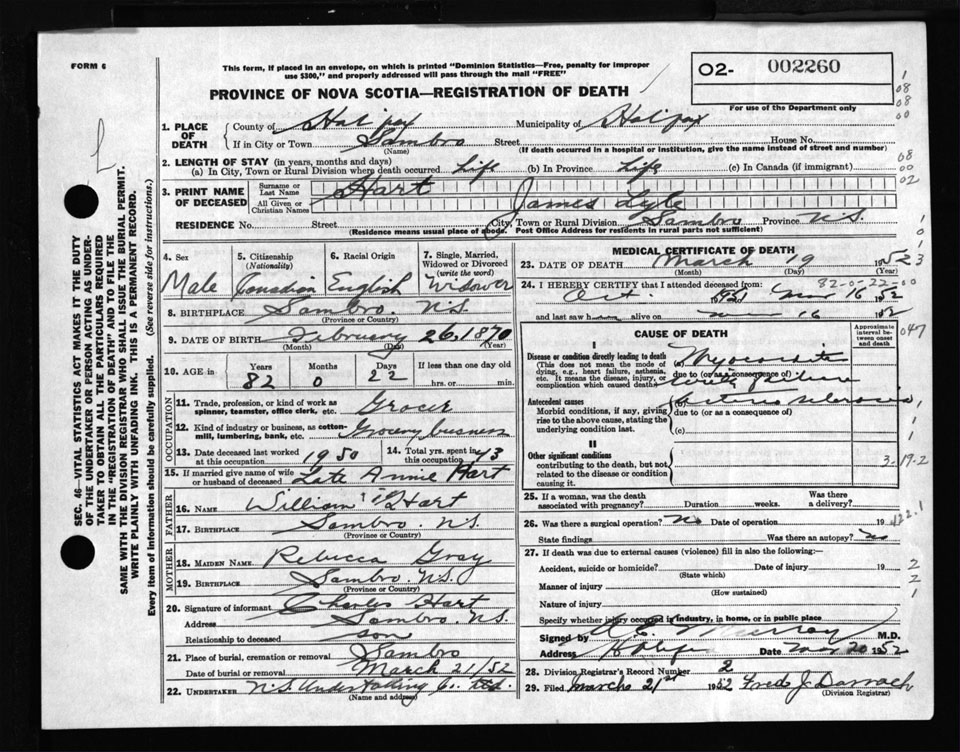 FORM 6
This form, if placed in an envelope, on which is printed "Dominion Statistics—Free, penalty for improper
use $300," and properly addressed will pass through the mail "FREE"
02- 002260
For use of the Department only
PROVINCE OF NOVA SCOTIA—REGISTRATION OF DEATH
1. PLACE OF DEATH
County of Halifax Municipality of Halifax
If in City or Town Sambro Street House No.
(Name) (If death occurred in a hospital or institution, give the name instead of street and number)
2. LENGTH OF STAY (in years, months and days)
(a) In City, Town or Rural Division where death occurred Life (b) In Province Life (c) In Canada (if immigrant)
3. PRINT NAME OF DECEASED
Surname or Last Name Hart
All Given or Christian Names James Lyle
RESIDENCE No. Street City, Town or Rural Division Sambro Province N.S.
(Residence means usual place of abode. Post Office Address for residents in rural parts not sufficient)
4. Sex 5. Citizenship (Nationality) 6. Racial Origin 7. Single, Married, Widowed or Divorced (write the word)
Male Canadian English Widower
8. BIRTHPLACE Sambro N.S.
(Province or Country)
9. DATE OF BIRTH February 26, 1870
(Month) (Day) (Year)
10. AGE in Years Months Days If less than one day old
82 0 22 hrs. or min.
OCCUPATION
11. Trade, profession, or kind of work as spinner, teamster, office clerk, etc. Grocer
12. Kind of industry or business, as cotton-mill, lumbering, bank, etc. Grocery business
13. Date deceased last worked at this occupation 1950 14. Total yrs. spent in this occupation 43
15. If married give name of wife or husband of deceased Late Annie Hart
FATHER
16. NAME William Hart
17. BIRTHPLACE Sambro. N.S.
(Province or Country)
MOTHER
18. MAIDEN NAME Rebecca Gray
19. BIRTHPLACE Sambro. N.S.
(Province or Country)
20. Signature of informant Charles Hart
Address Sambro. N.S.
Relationship to deceased son
21. Place of burial, cremation or removal Sambro
Date of burial or removal March 21/52
22. UNDERTAKER N.S. Undertaking Co. Ltd.
(Name and address)
MEDICAL CERTIFICATE OF DEATH
23. DATE OF DEATH March 19 1952
(Month) (Day) (Year)
82-0-22-00
24. I HEREBY CERTIFY that I attended deceased from:
Oct. 1951 Mar 16 1952
and last saw h alive on 16 1952
CAUSE OF DEATH
Approximate interval between onset and death
I
Disease or condition directly leading to death
(This does not mean the mode of dying, e.g., heart failure, asthenia, etc. It means the disease, injury, or complication which caused death)
(a) Myocarditis
due to (or as a consequence of)
with failure
Antecedent causes
Morbid conditions, if any, giving rise to the above cause, stating the underlying condition last.
(b) Arterio sclerosis
due to (or as a consequence of)
(c)
II
Other significant conditions
contributing to the death, but not related to the disease or condition causing it.
25. If a woman, was the death associated with pregnancy? Duration weeks. Was there a delivery?
26. Was there a surgical operation? No Date of operation 19
State findings Was there an autopsy? No
27. If death was due to external causes (violence) fill in also the following:—
Accident, suicide or homicide? Date of injury 19
(State which)
Manner of injury
(How sustained)
Nature of injury
Specify whether injury occurred in industry, in home, or in public place
Signed by A E Murray M.D.
Address Halifax Date Mar 20 1952
28. Division Registrar's Record Number 2
29. Filed March 21st 1952 Fred J. Darrach
(Division Registrar)
SEC. 46—VITAL STATISTICS ACT MAKES IT THE DUTY
OF THE UNDERTAKER OR PERSON ACTING AS UNDER-
TAKER TO OBTAIN ALL THE PARTICULARS REQUIRED
IN THE "REGISTRATION OF DEATH" AND TO FILE THE
SAME WITH THE DIVISION REGISTRAR WHO SHALL ISSUE THE BURIAL PERMIT.
WRITE PLAINLY WITH UNFADING INK. THIS IS A PERMANENT RECORD.
Every item of information should be carefully supplied. (See reverse side for instructions.)